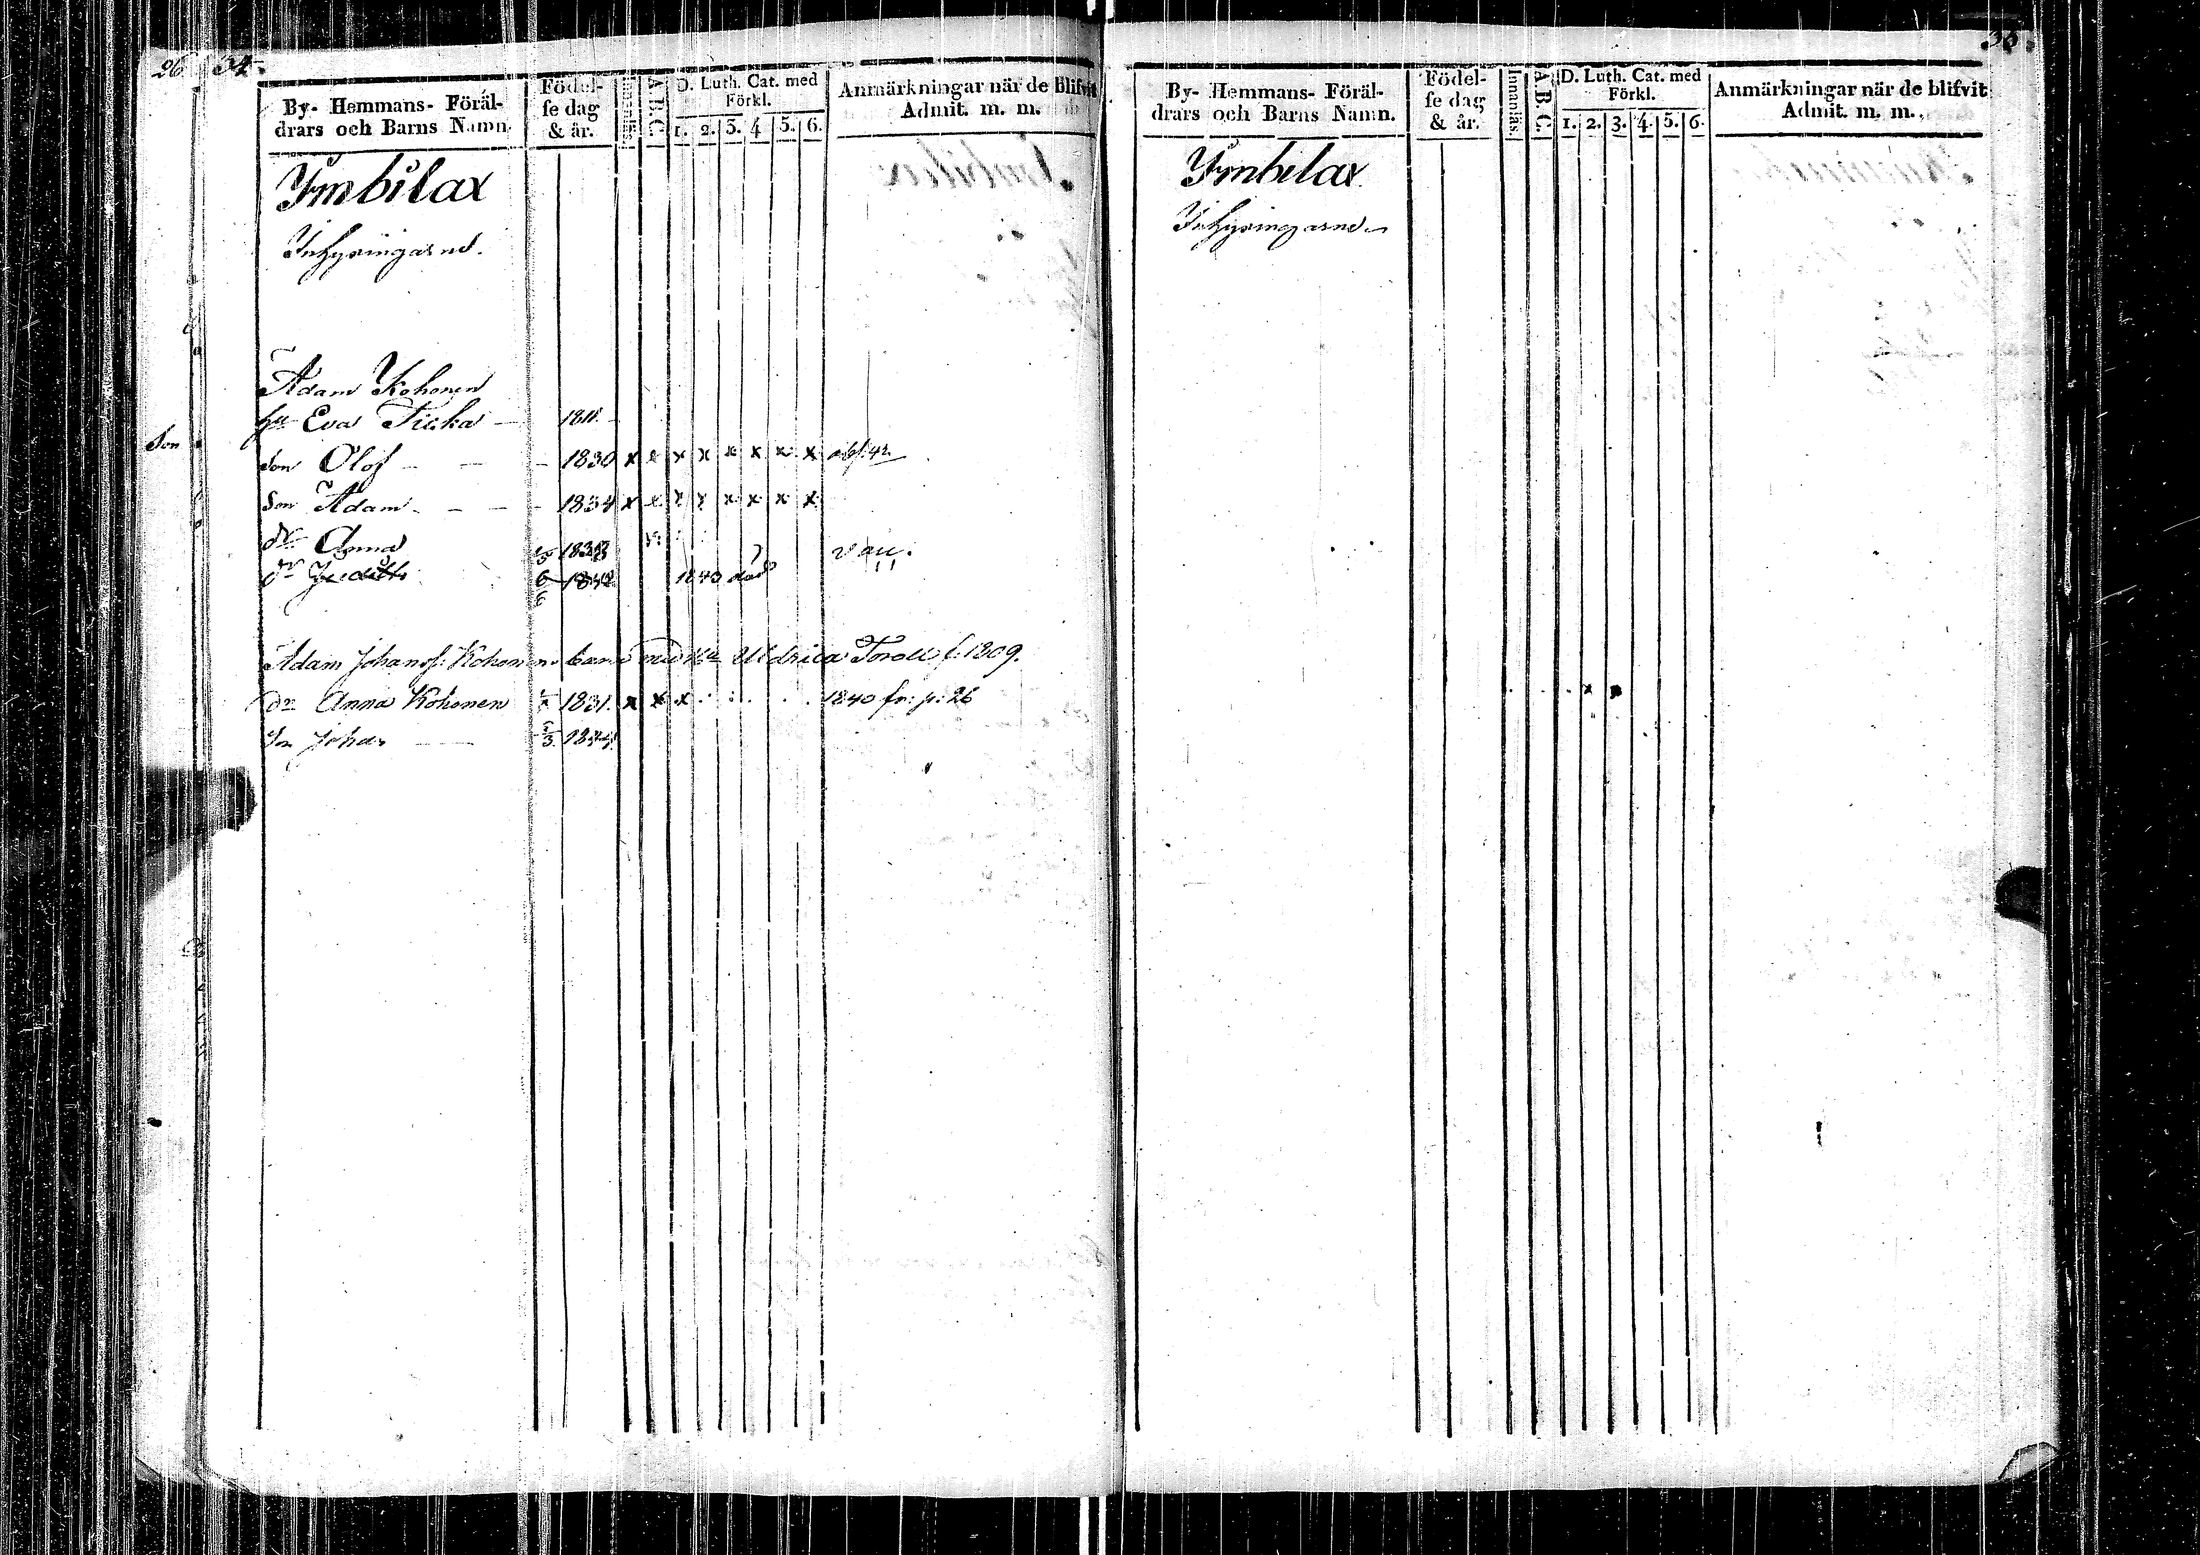 26 34.
By- Hemmans- Föräl-
drars och Barns Namn
Födel-
se dag
& år.
Innanläs.
A.B.C.
D. Luth. Cat. med
Förkl.
1. 2. 3. 4 5. 6.
Anmärkningar när de blifvit
Admit. m. m.
Ymbilax
Inhysingarne.
Adam Kohonen
hu Eva Ticka 1811.
Son
Son Olof - - - 1830 x x x x x x x x abs. 42
Son Adam - - - 1834 x x x x x x x x
dr Anna 1838 van.
dr Judith 6 1842 1843 död
Adam Johanss: Kohonens barn med Uldrica f. 1809.
dr Anna Kohonen 1831. x x x 1840 fr: p: 26
Son Johan 3 1834.
35.
By- Hemmans- Föräl-
drars och Barns Namn.
Födel-
se dag
& år.
Innanläs.
A.B.C.
D. Luth. Cat. med
Förkl.
1. 2. 3. 4. 5. 6.
Anmärkningar när de blifvit
Admit. m. m.
Ymbilax
Inhysingarne
x x